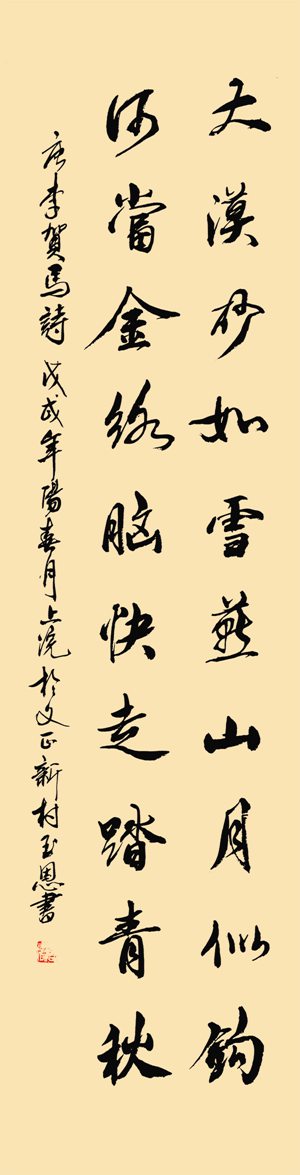 大漠砂如雪燕山月似鈎
何當金絡脑快走踏青秋
唐李賀馬詩 戊戌年陽春月上浣於文正新村玉恩書